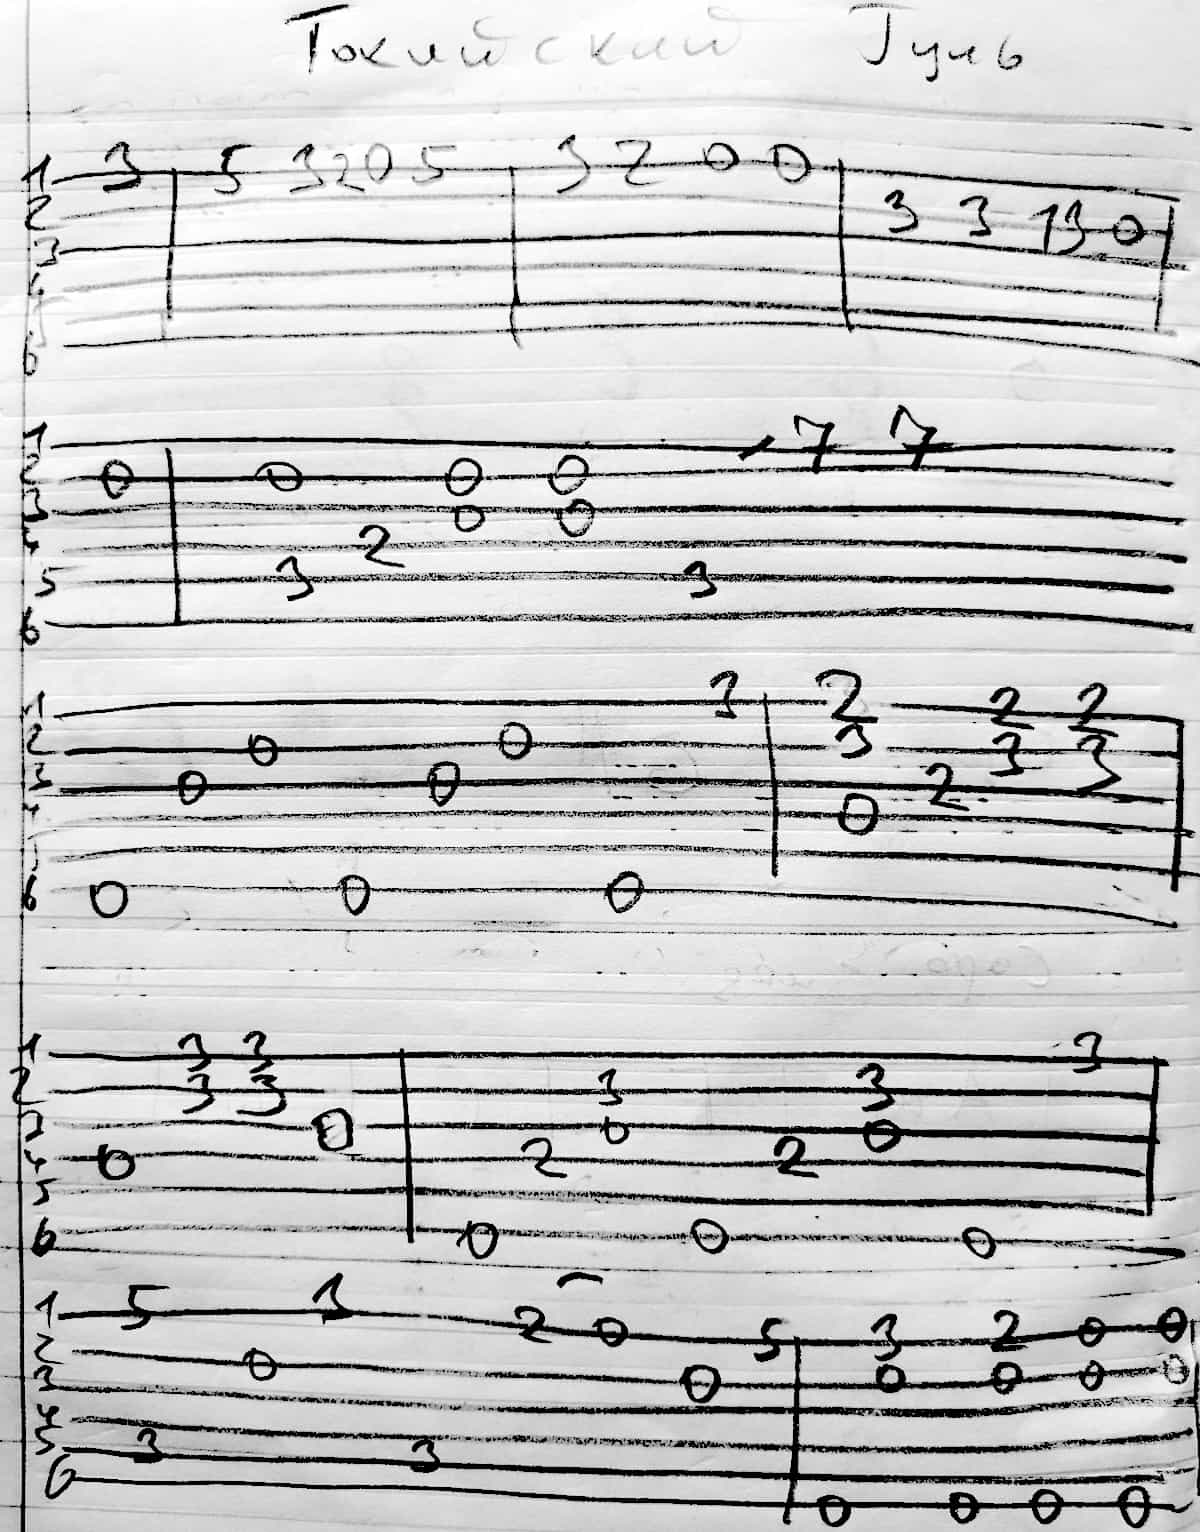 Токийский Гуль
1 3 5 3 2 0 5 3 2 0 0
2 3 3 1 3 0
3
4
5
6
1 7 7
2 0 0 0 0
3 0 0
4 2
5 3 3
6
1 3 2 2 2
2 0 0 3 3 3
3 0 0 2
4 0
5
6 0 0 0
1 3 3 3
2 3 3 3 3
3 0 0 0
4 0 2 2
5
6 0 0 0
1 5 3 2 0 5 3 2 0 0
2 0
3 0 0 0 0 0
4
5 3 3
6 0 0 0 0